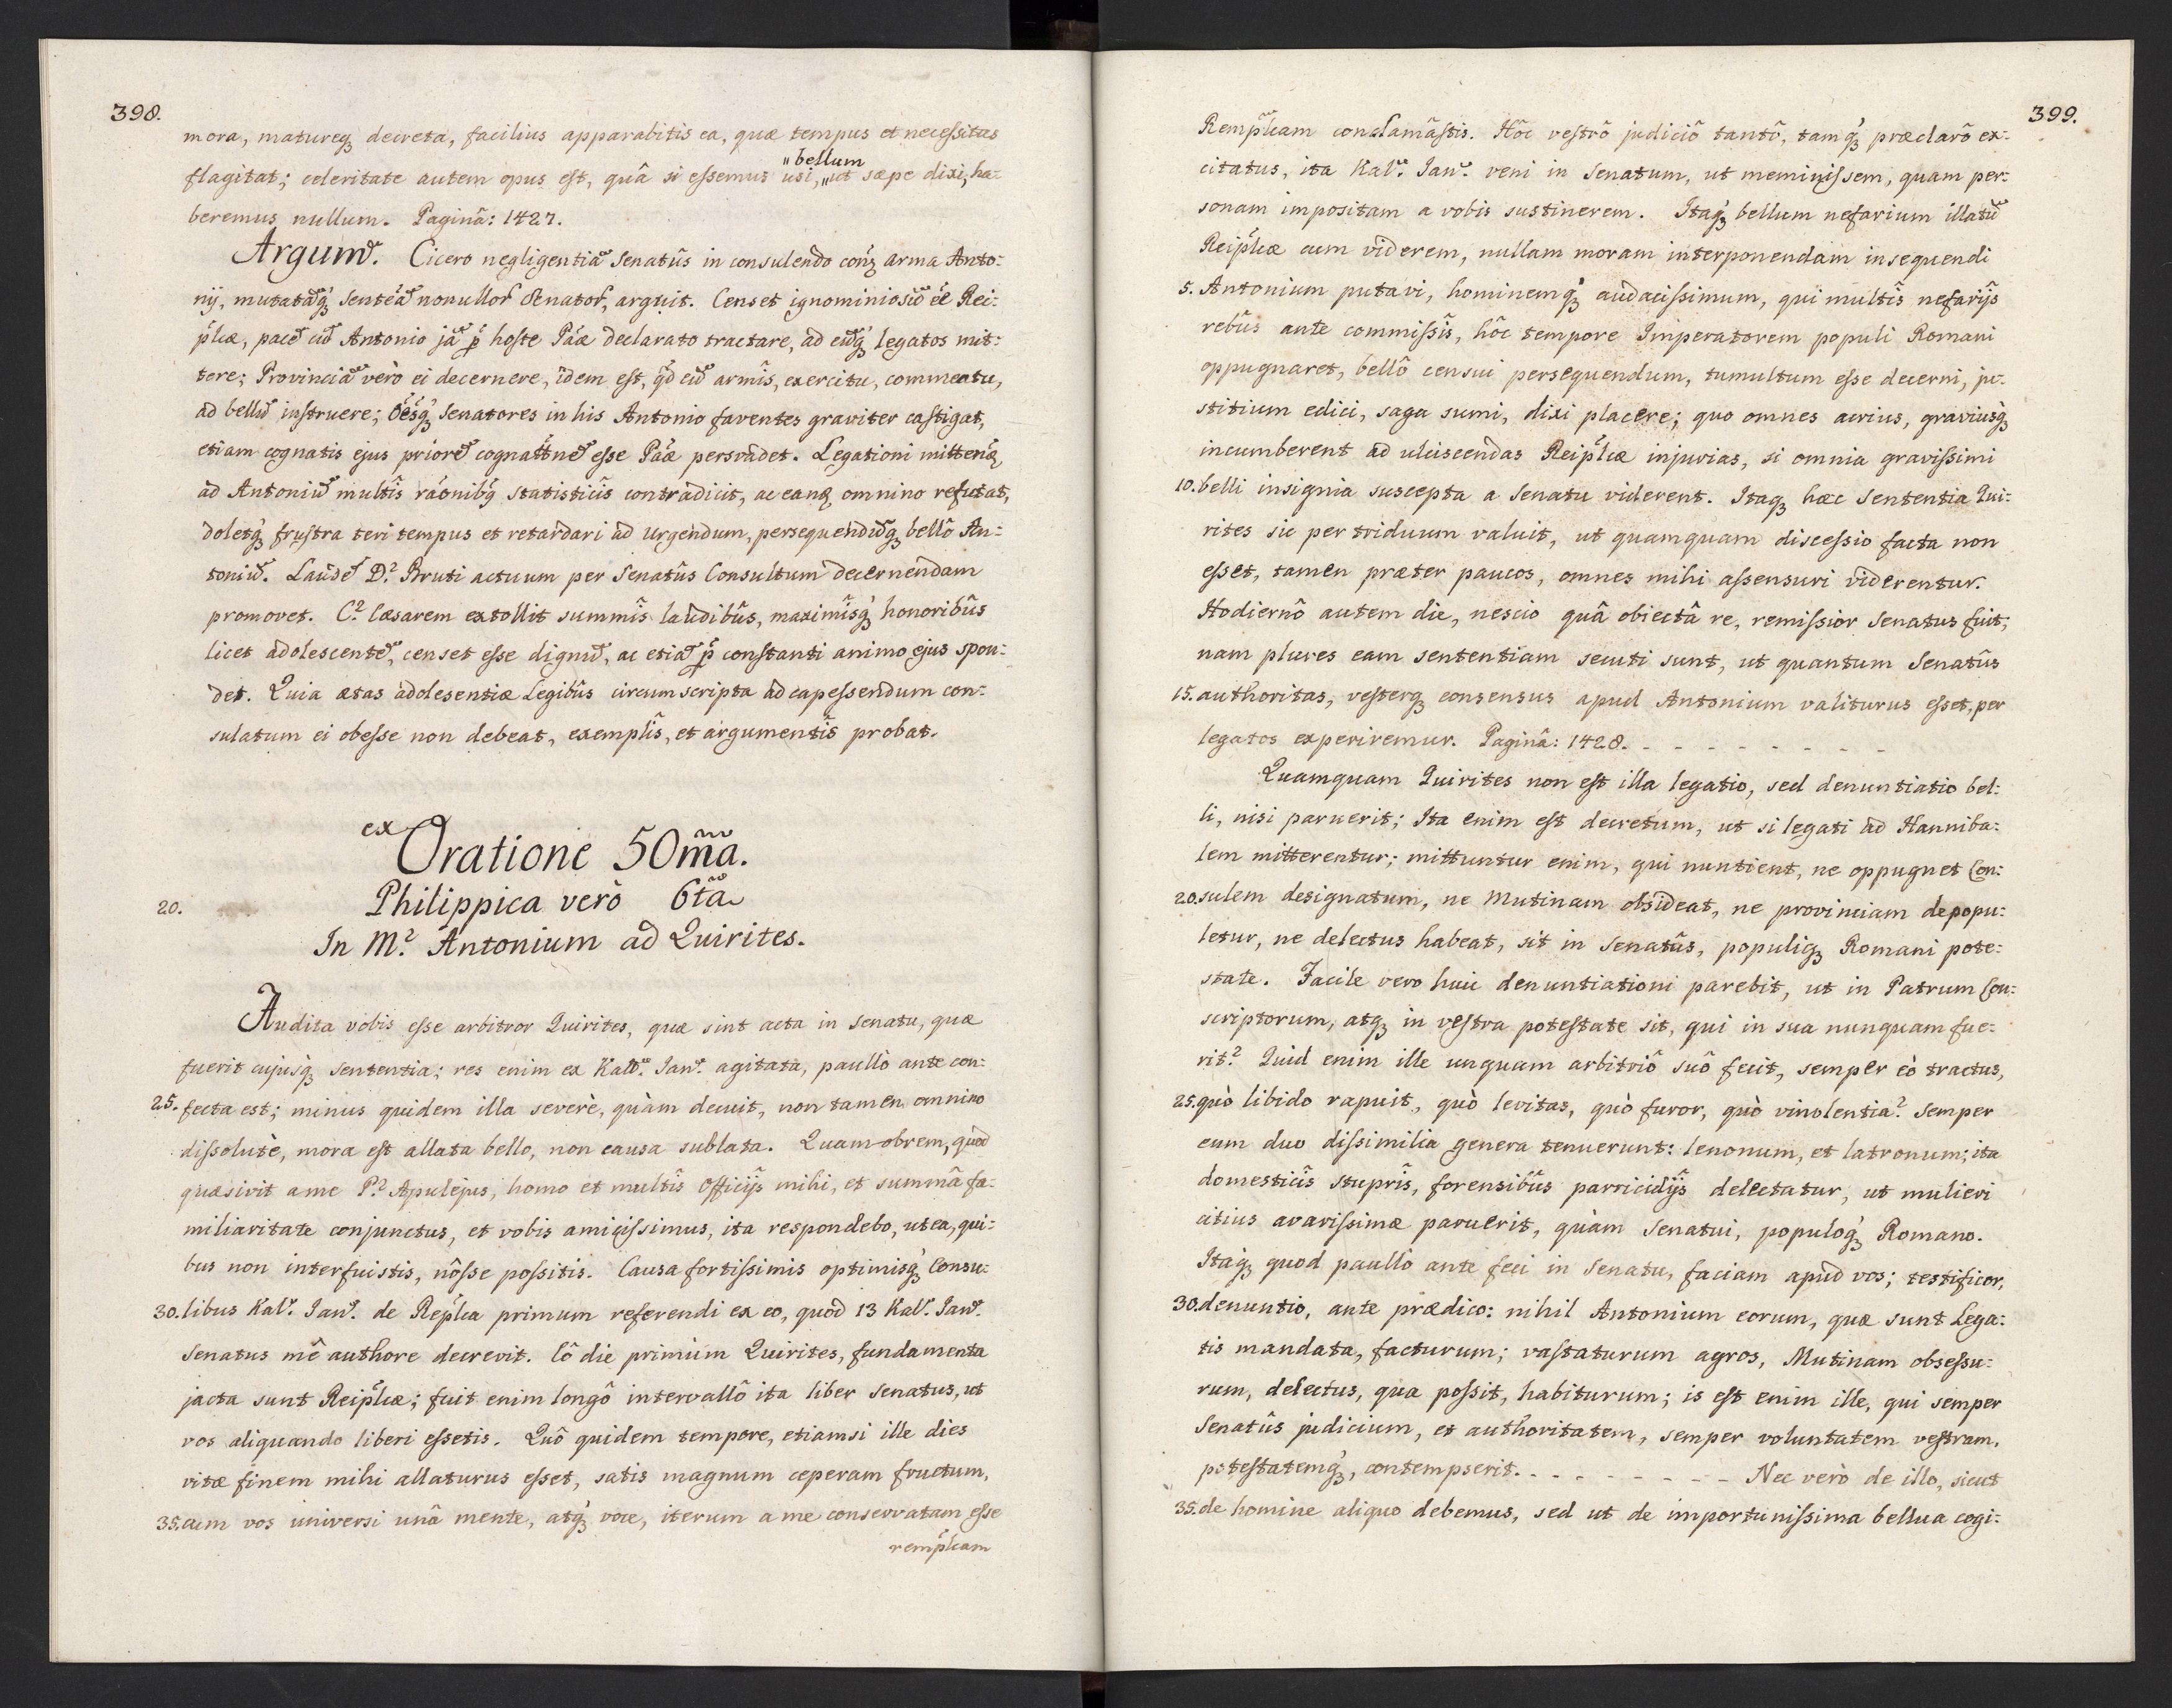 398.
mora, matureq3 decreta, facilius apparabitis ea, quæ tempus et necessitas
"bellum
flagitat; celeritate autem opus est, quâ si essemus usi, "ut sæpe dixi, ha:
beremus nullum. Paginâ: 1427.
Argum̃. Cicero negligentiã Senatûs in consulendo con̕ arma Anto:
nij, mutatãq3 senteã nonullor̃ Senator̃, arguit. Censet ignominiosũ ée̕ Rei:
p̕licæ, pacẽ cũ Antonio jã p̕ hoste Páæ declarato tractare, ad eũq3 legatos mit:
tere; Provinciã verò ei decernere, idem est, q̃d cũ armîs, exercitu, commeatu,
ad bellũ instruere; óésq3 Senatores in his Antonio faventes graviter castigat,
etiam cognatis ejus priorẽ cognattnẽ esse Páæ persvadet. Legationi mittenæ
ad Antoniũ multîs ráonibq3 statisticîs contradicit, ac eanq3 omnino refutat,
doletq3 frustra teri tempus et retardari ad urgendum, persequendũq3 bellô An:
toniũ. Laudẽ D.? Bruti actuum per Senatûs Consultum decernendam
promovet. C.? Cæsarem extollit summîs laudibûs, maximîsq3 honoribûs
licet adolescentẽ, censet esse dignũ, ac etiã p̕ constanti animo ejus spon:
det. Quia ætas adolesentiæ Legibûs circumscripta ad capessendum con:
sulatum ei obesse non debeat, exemplîs, et argumentîs probat.
ex
Oratione 50mã.
20. Philippica verò 6tã
In M.? Antonium ad Quirites.
Audita vobis esse arbitror Quirites, quæ sint acta in Senatu, quæ
fuerit cujusq3 sententia; res enim ex Kalẽ. Janr̃. agitata, paullò ante con:
25. fecta est; minus quidem illa severè, quàm decuit, non tamen omnino
dissolutè, mora est allata bello, non causa sublata. Quamobrem, quod
quæsivit a me P.? Apulejus, homo et multîs officijs mihi, et summâ fa:
miliaritate conjunctus, et vobis amicissimus, ita respondebo, ut ea, qui:
bus non interfuistis, nôsse possitis. Causa fortissimis optimisq3 Consu:
30. libus Kalr̃. Janr̃. de Rep̕lica primum referendi ex eo, quod 13 Kalr̃. Janr̃.
Senatus mê authore decrevit. Eô die primùm Quirites, fundamenta
jacta sunt Reip̕licæ; fuit enim longô intervallô ita liber Senatus, ut
vos aliquando liberi essetis. Quô quidem tempore, etiamsi ille dies
vitæ finem mihi allaturus esset, satis magnum ceperam fructum,
35. cum vos universi unâ mente, atq3 voce, iterum a me conservatam esse
remp̕licam
399.
Remp̕licam conclamâstis. Hôc vestrô judiciô tantô, tamq3 præclarô ex:
citatus, ita Kalr̃. Janr̃. veni in Senatum, ut meminissem, quam per:
sonam impositam a vobis sustinerem. Itaq3 bellum nefarium illatũ
Reip̕licæ cum viderem, nullam moram interponendam insequendi
5. Antonium putavi, hominemq3 audacissimum, qui multîs nefarijs
rebûs ante commissîs, hôc tempore Imperatorem populi Romani
oppugnaret, bellô censui persequendum, tumultum esse decerni, ju:
stitium edici, saga sumi, dixi placere; quo omnes acrius, graviusq3
incumberent ad ulciscendas Reip̕licæ injurias, si omnia gravissimi
10. belli insignia suscepta a Senatu viderent. Itaq3 hæc Sententia Qui:
rites sic per triduum valuit, ut quamquam discessio facta non
esset, tamen præter paucos, omnes mihi assensuri viderentur.
Hodiernô autem die, nescio quâ obiectâ re, remissior Senatus fuit;
nam plures eam sententiam secuti sunt, ut quantum Senatûs
15. authoritas, vesterq3 consensus apud Antonium valiturus esset, per
legatos experiremur. Paginâ: 1428. - - - - - - - - -
Quamquam Quirites non est illa legatio, sed denuntiatio bel:
li, nisi paruerit; Ita enim est decretum, ut si legati ad Hanniba:
lem mitterentur; mittuntur enim, qui nuntient, ne oppugnet Con:
20. sulem designatum, ne Mutinam obsideat, ne provinciam depopu:
letur, ne delectus habeat, sit in Senatûs, populiq3 Romani pote:
state. Facile vero huic denuntiationi parebit, ut in Patrum Con:
scriptorum, atq3 in vestra potestate sit, qui in sua nunquam fue:
rit? Quid enim ille unquam arbitriô suô fecit, semper eò tractus,
25. quò libido rapuit, quò levitas, quò furor, quò vinolentia? Semper
eum duo dissimilia genera tenuerunt: lenonum, et latronum; ita
domesticîs stuprîs, forensibûs parricidijs delectatur, ut mulieri
citius avarissimæ paruerit, quàm Senatui, populoq3 Romano.
Itaq3 quod paullò ante feci in Senatu, faciam apud vos; testificor,
30. denuntio, ante prædico: nihil Antonium eorum, quæ sunt Lega:
tis mandata, facturum; vastaturum agros, Mutinam obsessu:
rum, delectus, qua possit, habiturum; is est enim ille, qui semper
Senatûs judicium, et authoritatem, semper voluntatem vestram,
potestatemq3, contempserit. - - - - - - - - - Nec verò de illo, sicut
35. de homine aliquo debemus, sed ut de importunissima bellua cogi: